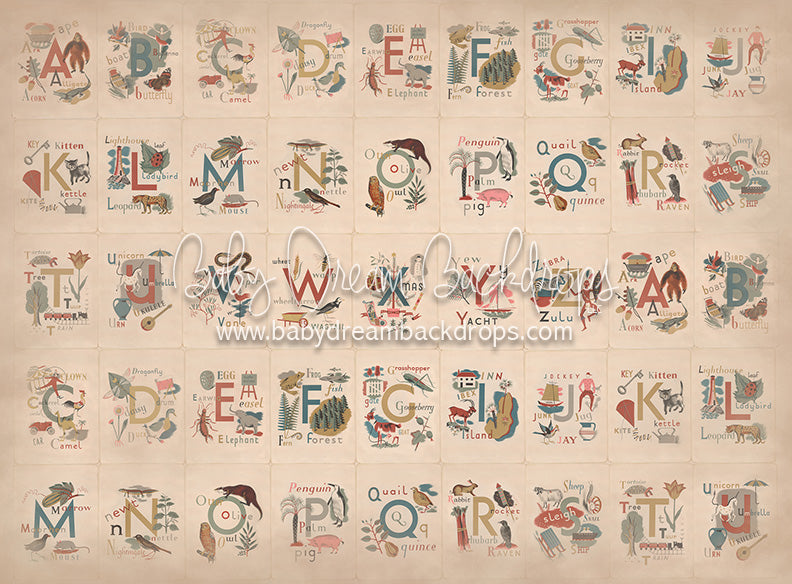 ape A Acorn Alligator
BIRD boat B Butterfly
CLOWN C CAR Camel
Dragonfly D drum daisy DUCK
EGG EARWIG E easel Elephant
FROG fish F Fern Forest
Grasshopper gate G Gooseberry GOAT
INN IBEX I Island
JOCKEY JUNK J Jug JAY
KEY Kitten K KITE kettle
Lighthouse leaf L Ladybird Leopard
Marrow M Moorhen Mouse
newt N nettle Nightingale
Otter Olive O Owl
Penguin P Palm pig
Quail Q q quince
Rabbit Rocket R rhubarb RAVEN
Sheep sleigh S SNAIL SHIP
Tortoise Tree T t TRAIN
Unicorn U Umbrella URN UKULELE
V Vane
wheat W wheelbarrow WAGTAIL
X Xmas
Yew Y YACHT
ZEBRA Z Zulu
ape A Acorn Alligator
BIRD boat B butterfly
Baby Dream Backdrops
www.babydreambackdrops.com
CLOWN C CAR Camel
Dragonfly D drum daisy DUCK
EGG EARWIG E easel Elephant
FROG fish F Fern Forest
Grasshopper gate G Gooseberry GOAT
INN IBEX I Island
JOCKEY JUNK J Jug JAY
KEY Kitten K KITE kettle
Lighthouse leaf L Ladybird Leopard
Marrow M Moorhen Mouse
newt N nettle Nightingale
Otter Olive O Owl
Penguin P Palm pig
Quail Q q quince
Rabbit Rocket R rhubarb RAVEN
Sheep sleigh S SNAIL SHIP
Tortoise Tree T t TRAIN
Unicorn U Umbrella URN UKULELE